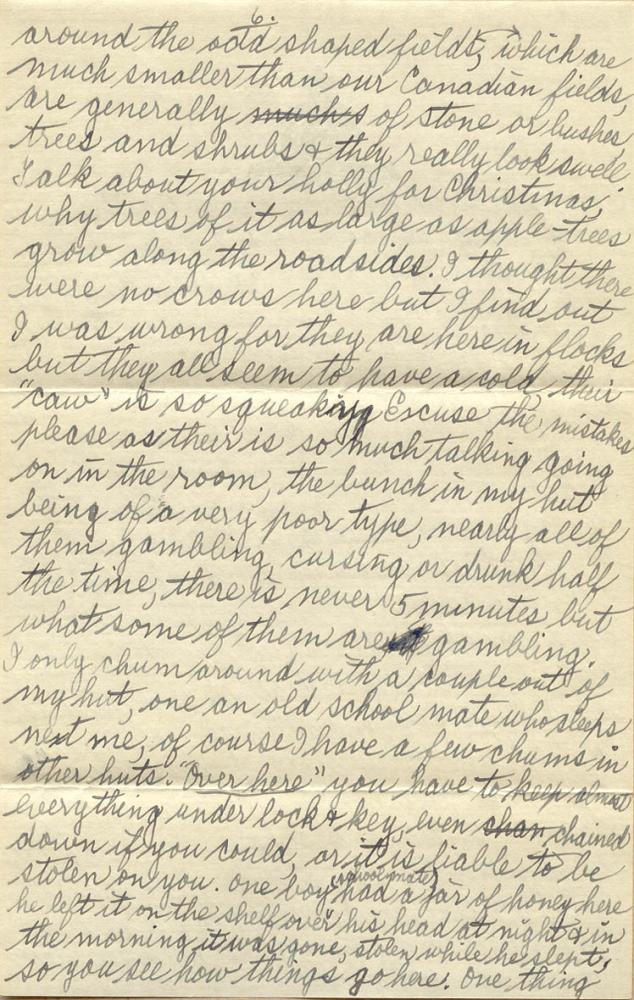 6.
around the odd shaped fields, which are
much smaller than our Canadian fields,
are generally much s of stone or bushes,
trees and shrubs & they really look swell.
Talk about your holly for Christmas,
why trees of it as large as apple-trees
grow along the roadsides. I thought there
were no crows here but I find out
I was wrong for they are here in flocks
but they all seem to have a cold, their
"caw" is so squeaking. Excuse the mistakes
please as their is so much talking going
on in the room, the bunch in my hut
being of a very poor type, nearly all of
them gambling, cursing or drunk half
the time, there is never 5 minutes but
what some of them are gambling.
I only chum around with a couple out of
my hut, one an old school mate who sleeps
next me, of course I have a few chums in
other huts. "Over here" you have to keep almost
everything under lock & key, even chan chained
down if you could, or it is liable to be
stolen on you. One boy (school mate) had a jar of honey here
he left it on the shelf over his head at night & in
the morning it was gone, stolen while he slept,
so you see how things go here. One thing